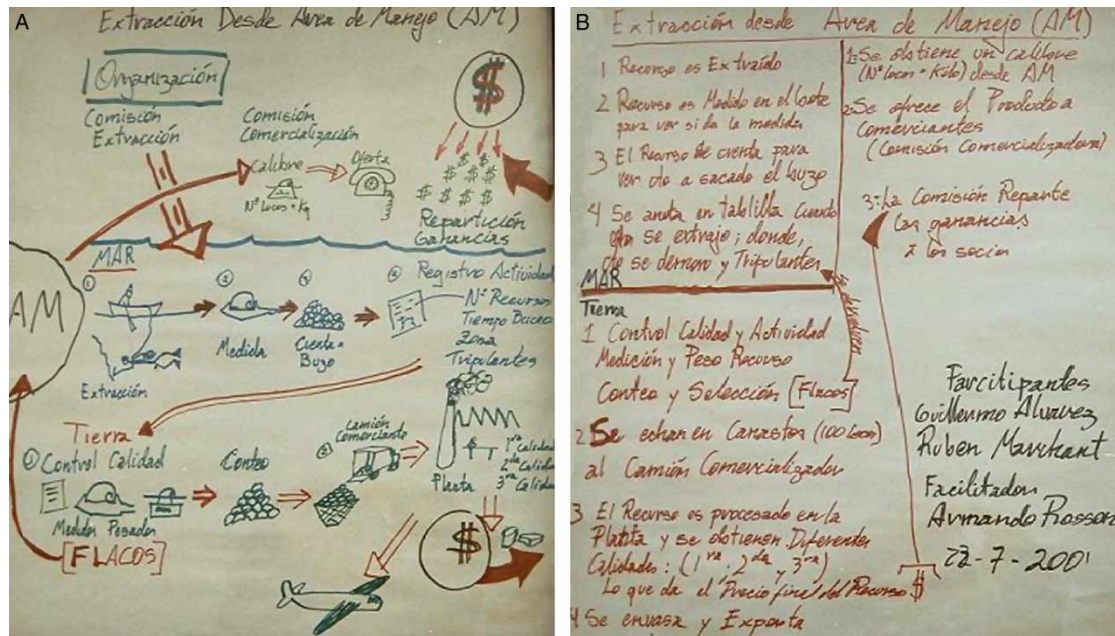 A
Extracción Desde Area de Manejo (AM)
Organización
Comisión
Extracción
Comisión
Comercialización
Calibre
Nº Locos = Kg
Oferta
$
$ $ $
$ $ $ $
$ $ $
Repartición
Ganancias
AM
MAR
1
Extracción
2
Medida
3
Cuenta
Buzo
4
Registro Actividad
Nº Recursos
Tiempo Buceo
Zona
Tripulantes
Tierra
1 Control Calidad
Medidor Pesador
[FLACOS]
Conteo
2
Camión
Comerciante
Planta
1ra Calidad
2da Calidad
3ra Calidad
$
B
Extracción desde Area de Manejo (AM)
1 Recurso es Extraído
2 Recurso es Medido en el bote
para ver si da la medida
3 El Recurso se cuenta para
ver cto a sacado el buzo
4 Se anota en tablilla cuando
se extrajo; donde,
cto se demoro y Tripulantes
MAR
Tierra
1 Control Calidad y Actividad
Medición y Peso Recurso
Conteo y Selección [FLACOS]
Se devuelven
2 Se echan en Canastos (100 Locos)
al Camión Comercializador
3 El Recurso es procesado en la
Planta y se obtienen Diferentes
Calidades: (1ra, 2da y 3ra)
Lo que da el Precio final del Recurso $
4 Se envasa y Exporta
1: Se obtiene un calibre
(Nº Locos = Kilo) desde AM
2: Se ofrece el Producto a
Comerciantes
(Comisión Comercializadora)
3: La Comisión Reparte
las ganancias
a los socios
Participantes
Guillermo Alvarez
Ruben Marchant
Facilitador
Armando Rosson
22-7-2001